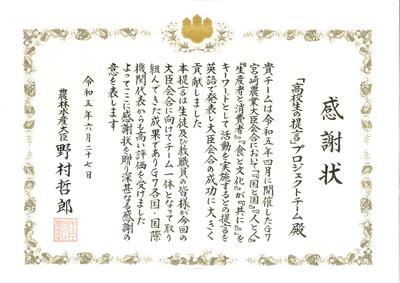 感謝状
「高校生の提言」プロジェクトチーム 殿
貴チームは令和五年四月に開催したG7
宮崎農業大臣会合において『国と国』『人と人』
『生産者と消費者』『食と文化』が『共に』を
キーワードとして活動を実施するとの提言を
英語で発表し大臣会合の成功に大きく
貢献しました
本提言は生徒及び教職員の皆様が今回の
大臣会合に向けてチーム一体となって取り
組んできた成果でありG7各国・国際
機関代表からも高い評価を受けました
よってここに感謝状を贈り深甚なる感謝の
意を表します
令和五年六月二十七日
農林水産大臣 野村哲郎